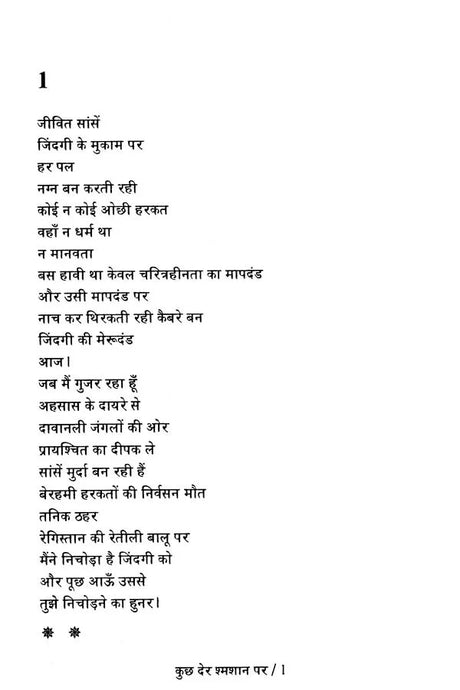 1
जीवित सांसें
जिंदगी के मुकाम पर
हर पल
नग्न बन करती रही
कोई न कोई ओछी हरकत
वहाँ न धर्म था
न मानवता
बस हावी था केवल चरित्रहीनता का मापदंड
और उसी मापदंड पर
नाच कर थिरकती रही कैबरे बन
जिंदगी की मेरूदंड
आज।
जब मैं गुजर रहा हूँ
अहसास के दायरे से
दावानली जंगलों की ओर
प्रायश्चित का दीपक ले
सांसें मुर्दा बन रही हैं
बेरहमी हरकतों की निर्वसन मौत
तनिक ठहर
रेगिस्तान की रेतीली बालू पर
मैंने निचोड़ा है जिंदगी को
और पूछ आऊँ उससे
तुझे निचोड़ने का हुनर।
कुछ देर श्मशान पर / 1